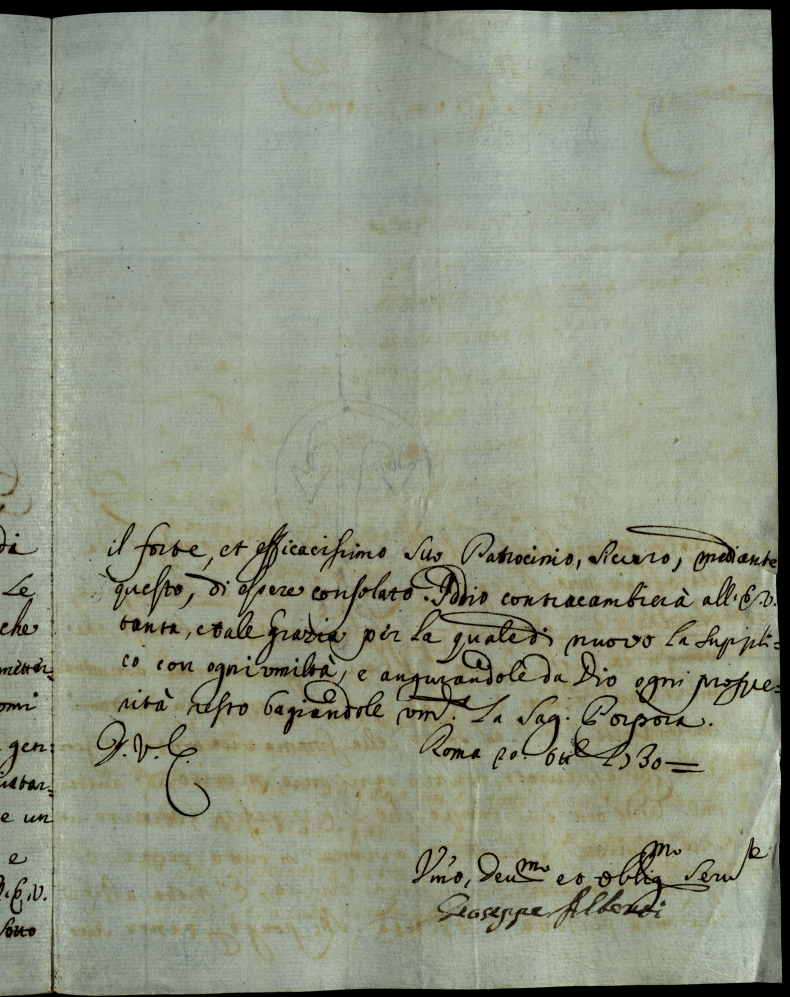 dà
Le
che
metter=
omi
gen:
e un
e
D. E. V.
sotto
il forte, et efficacissimo suo Patrocinio, sicuro, mediante
questo, di essere consolato. Iddio contracambierà all' E. V.
tanta, e tale grazia per la quale di nuovo la suppli=
co con ogni umiltà, e augurandole da Dio ogni prospe=
rità resto bagiandole umte. La Sag. Porpora.
D. V. E.
Roma 20. 1730=
Vmo, Deumo et obligmo Serure
Gioseppe